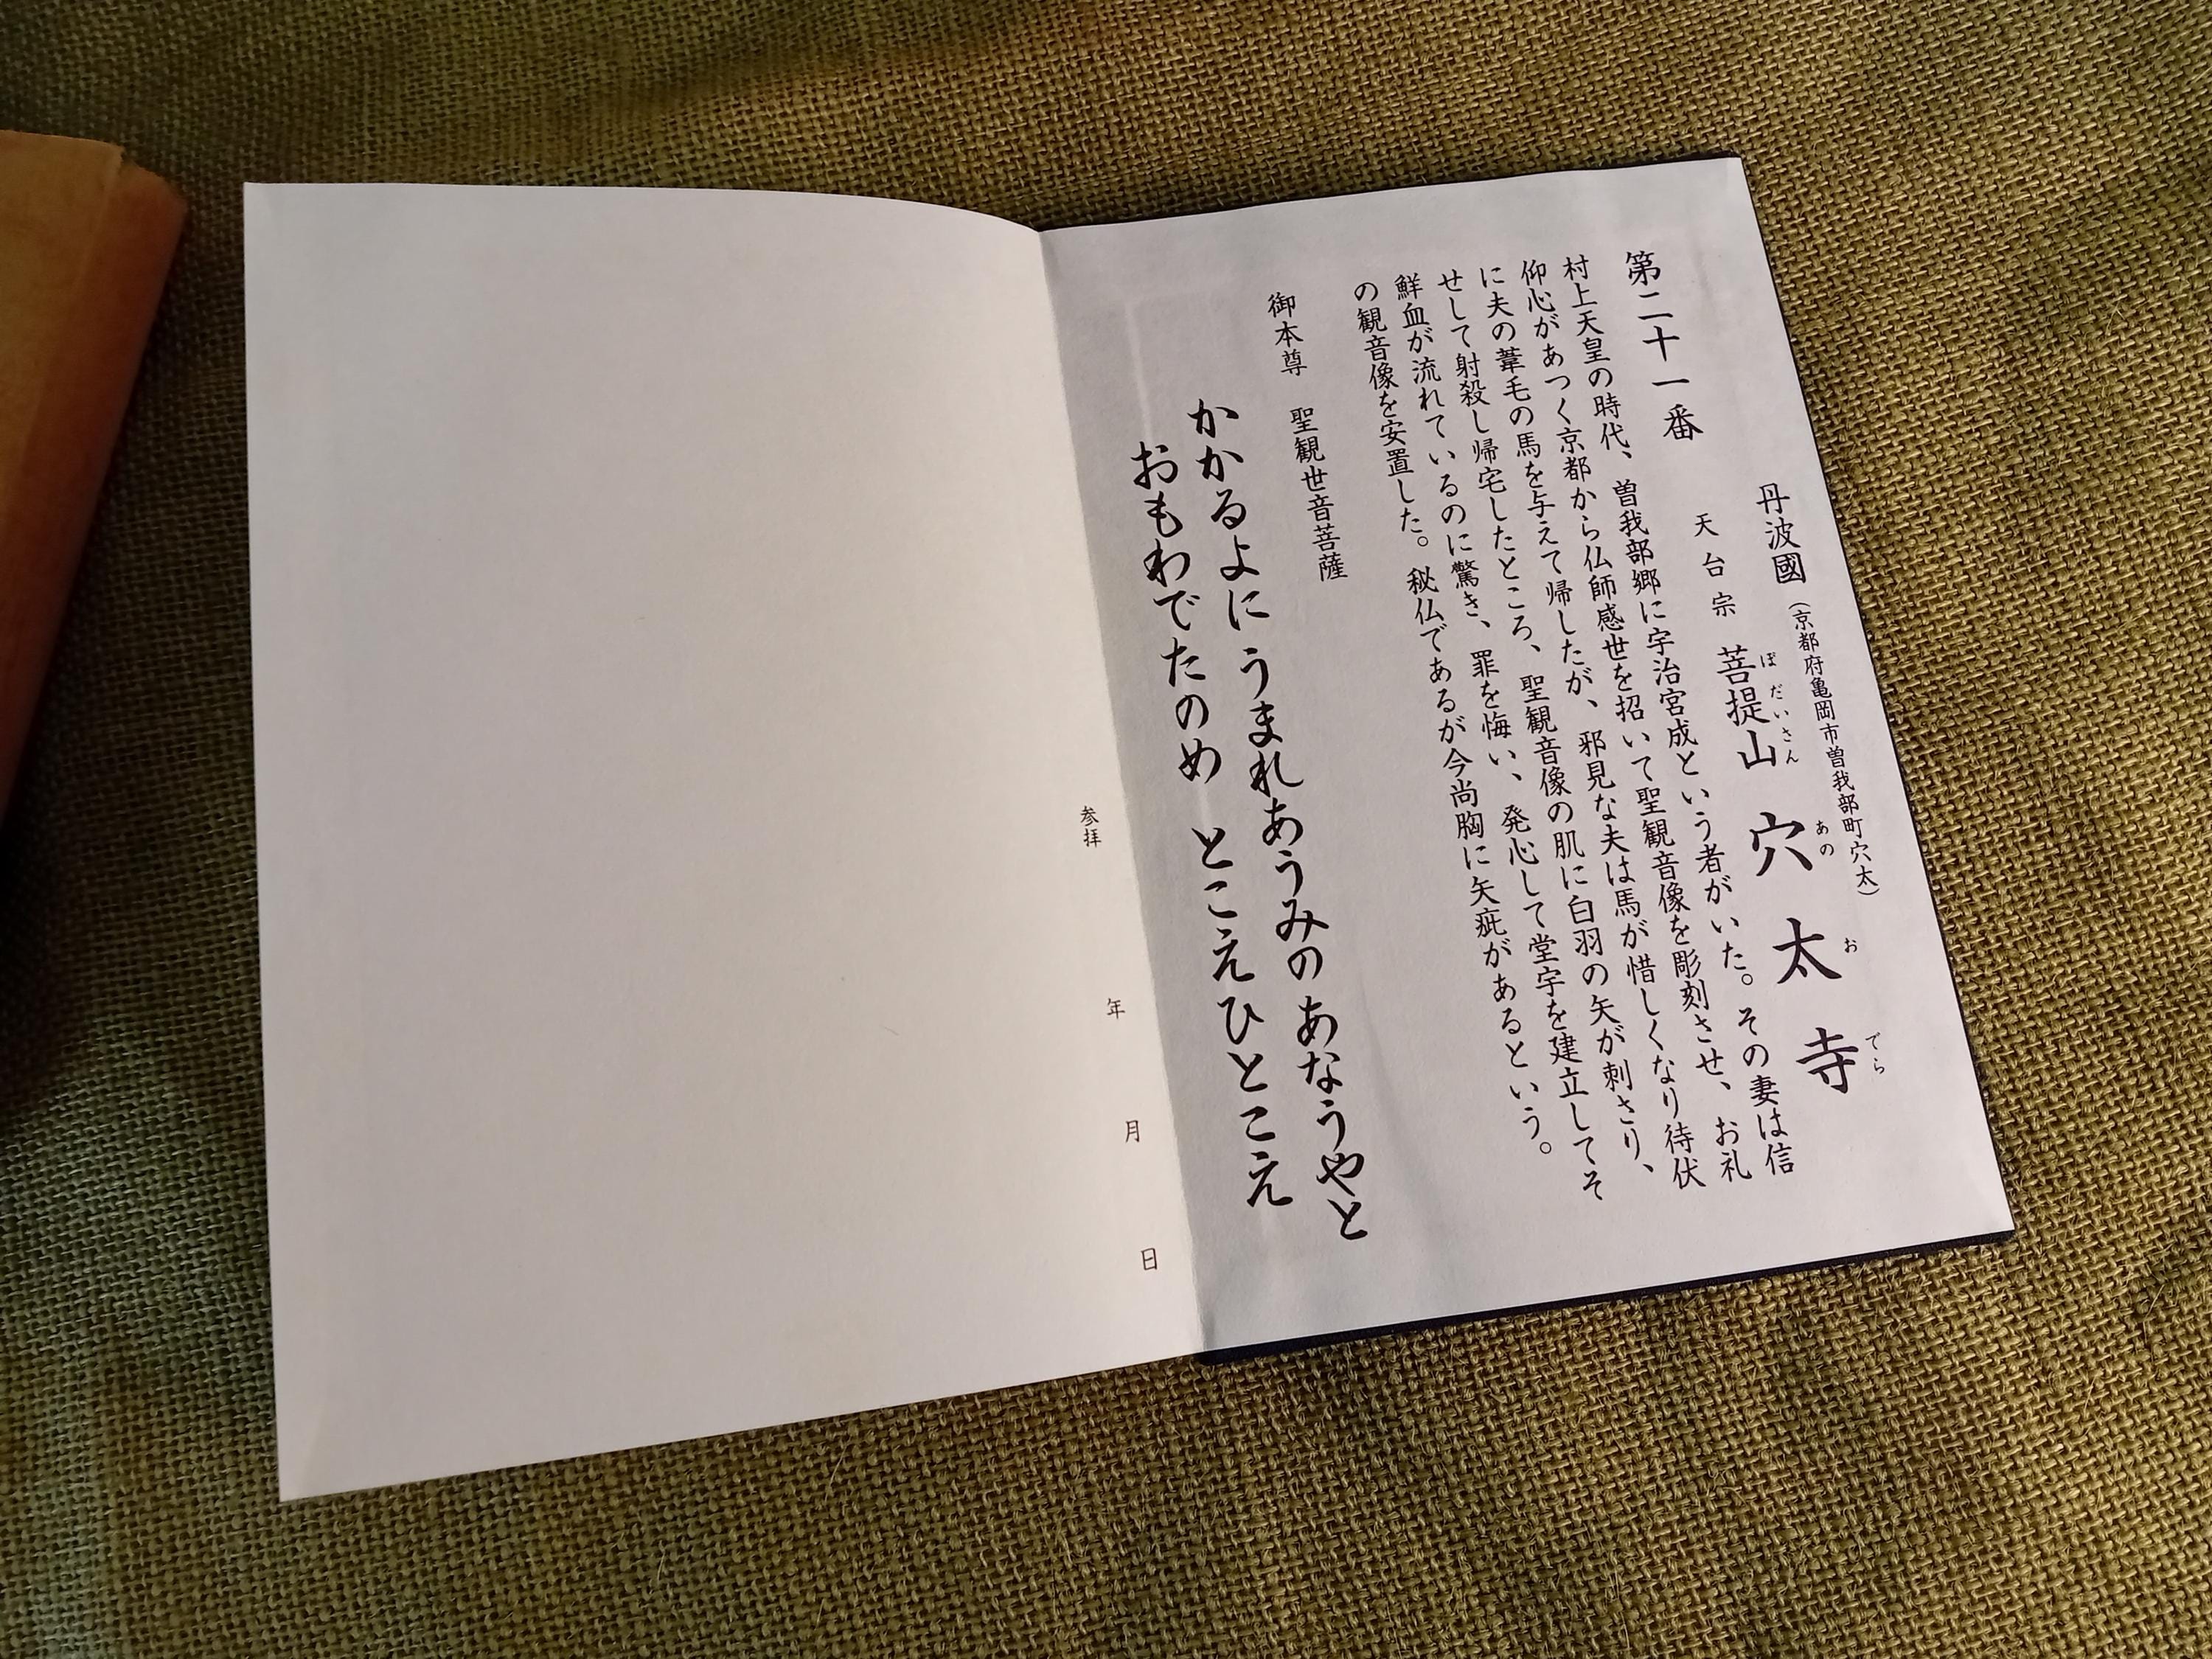 第二十一番
丹波國（京都府亀岡市曽我部町穴太）
天台宗 菩提山 穴太寺
ぼだいさん あのおでら
村上天皇の時代、曽我部郷に宇治宮成という者がいた。その妻は信
仰心があつく京都から仏師感世を招いて聖観音像を彫刻させ、お礼
に夫の葦毛の馬を与えて帰したが、邪見な夫は馬が惜しくなり待伏
せして射殺し帰宅したところ、聖観音像の肌に白羽の矢が刺さり、
鮮血が流れているのに驚き、罪を悔い、発心して堂宇を建立してそ
の観音像を安置した。秘仏であるが今尚胸に矢疵があるという。
御本尊 聖観世音菩薩
かかるよに うまれあうみの あなうやと
おもわでたのめ とこえひとこえ
参拝 年 月 日